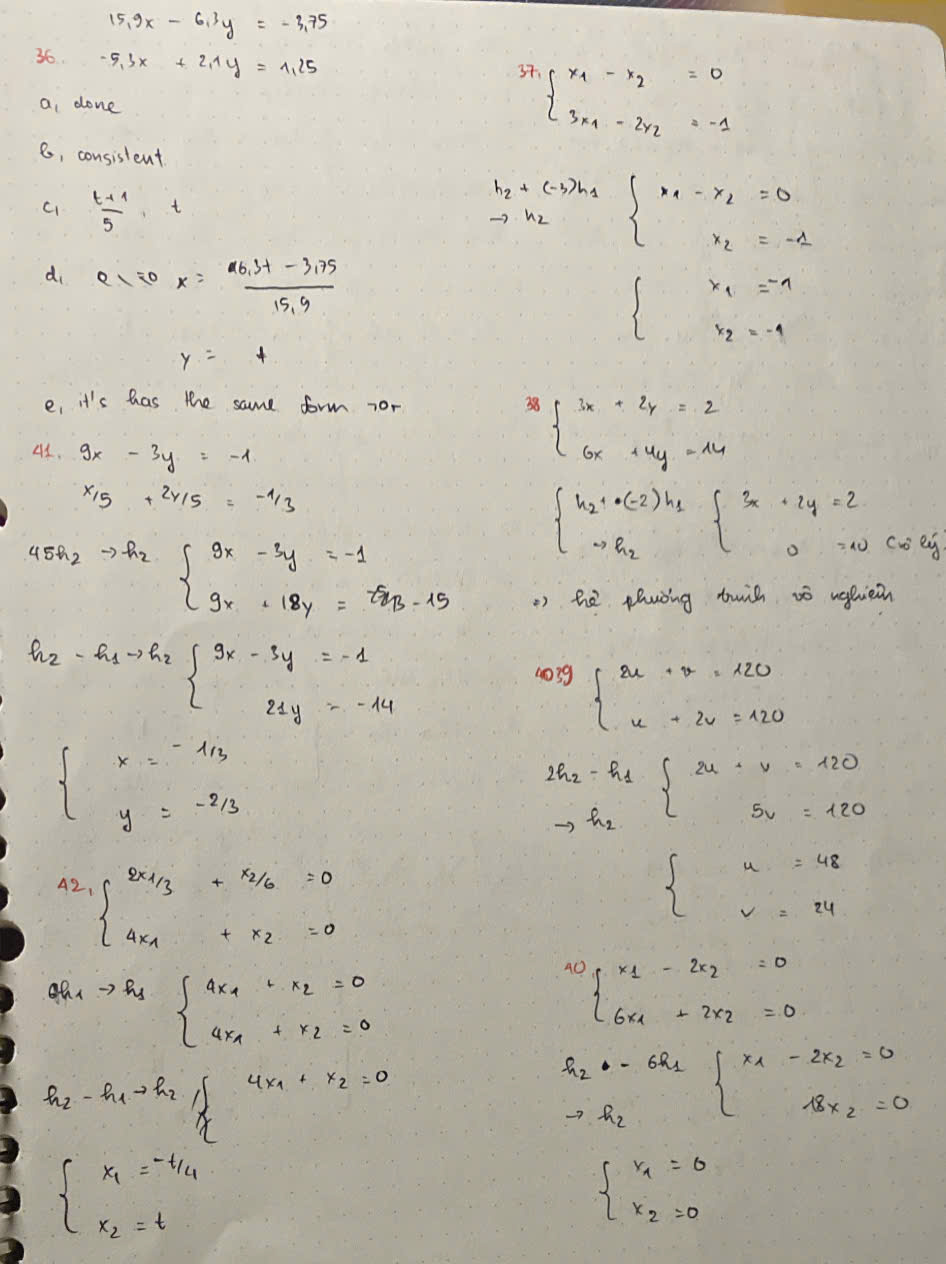 15,9x - 6,3y = -3,75
36. -5,3x + 2,1y = 1,25
a, done
b, consistent
c, t+1/5, t
d, x = 6,3t - 3,75/15,9
y = t
e, it's has the same form
41. 9x - 3y = -1
x/5 + 2y/5 = -1/3
45h2 → h2 { 9x - 3y = -1
9x + 18y = -15
h2 - h1 → h2 { 9x - 3y = -1
21y = -14
{ x = -1/3
y = -2/3
42, { 2x1/3 + x2/6 = 0
4x1 + x2 = 0
6h1 → h1 { 4x1 + x2 = 0
4x1 + x2 = 0
h2 - h1 → h2 { 4x1 + x2 = 0
{ x1 = -t/4
x2 = t
37, { x1 - x2 = 0
3x1 - 2x2 = -1
h2 + (-3)h1 { x1 - x2 = 0
→ h2 x2 = -1
{ x1 = -1
x2 = -1
38 { 3x + 2y = 2
6x + 4y = 14
{ h2 + (-2)h1 { 3x + 2y = 2
→ h2 0 = 10 (vô lý)
=> hệ phương trình vô nghiệm
39 { 2u + v = 120
u + 2v = 120
2h2 - h1 { 2u + v = 120
→ h2 5v = 120
{ u = 48
v = 24
40, { x1 - 2x2 = 0
6x1 + 2x2 = 0
h2 - 6h1 { x1 - 2x2 = 0
→ h2 18x2 = 0
{ x1 = 0
x2 = 0